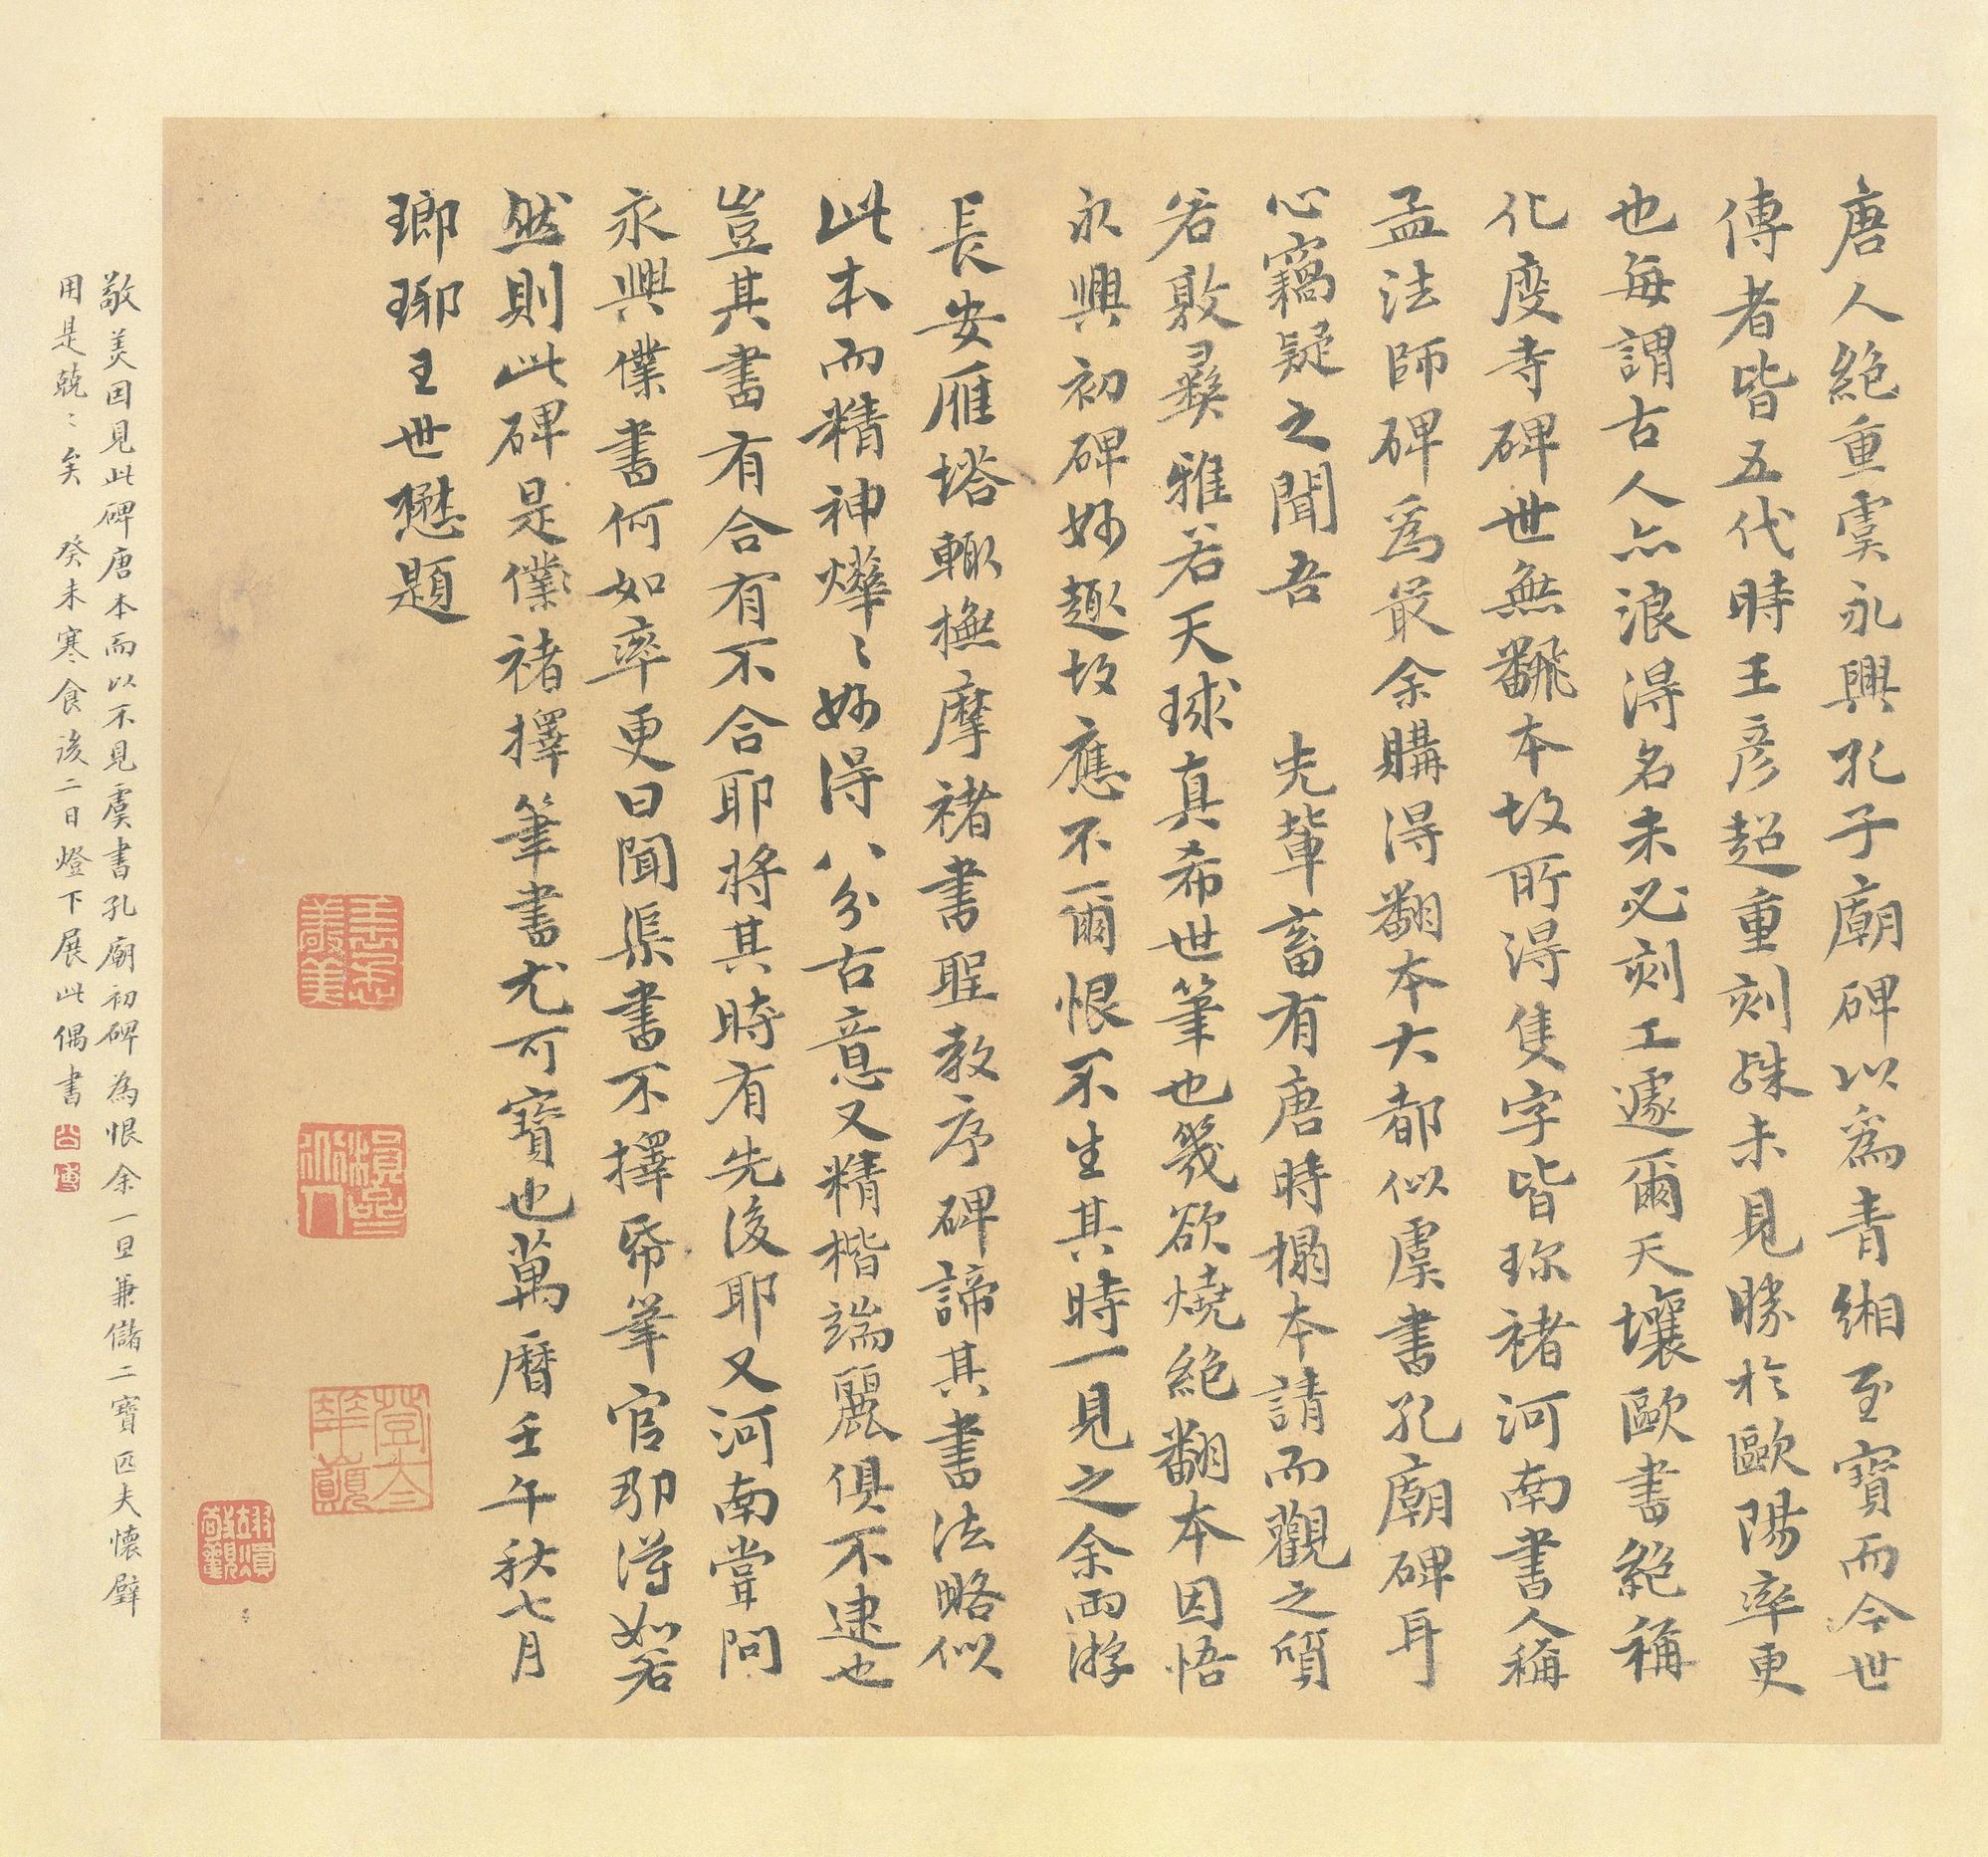 唐人絕重虞永興孔子廟碑以為青緗至寶而今世
傳者皆五代時王彥超重刻殊未見勝於歐陽率更
也每謂古人亦浪得名未必刻工遽爾天壤歐書絕稱
化度寺碑世無飜本故所得隻字皆珎褚河南書人稱
孟法師碑為最余購得翻本大都似虞書孔廟碑耳
心竊疑之聞吾 先輩畜有唐時搨本請而觀之質
若敦彝雅若天球真希世筆也幾欲燒絕翻本因悟
永興初碑妙趣故應不爾恨不生其時一見之余兩游
長安雁塔輙撫摩褚書聖教序碑諦其書法略似
此本而精神燁〻妙得八分古意又精楷端麗俱不逮也
豈其書有合有不合耶將其時有先後耶又河南嘗問
永興僕書何如率更曰聞渠書不擇帋筆官那得如若
然則此碑是僕褚擇筆書尤可寶也萬曆壬午秋七月
瑯琊王世懋題
敬美因見此碑唐本而以不見虞書孔廟初碑為恨余一旦兼儲二寶匹夫懷璧
用是兢〻矣 癸未寒食後二日燈下展此偶書